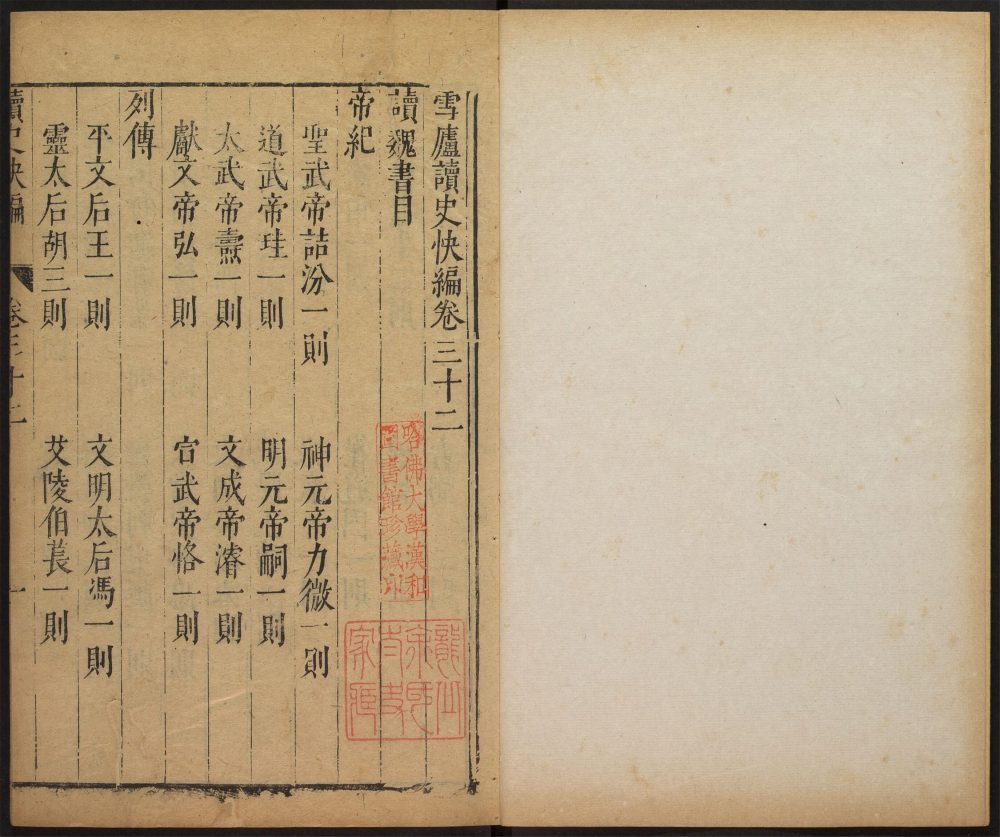 雪廬讀史快編卷三十二
讀魏書目
帝紀
聖武帝詰汾一則 神元帝力微一則
道武帝珪一則 明元帝嗣一則
太武帝燾一則 文成帝濬一則
獻文帝弘一則 宣武帝恪一則
列傳
平文后王一則 文明太后馮一則
靈太后胡三則 艾陵伯萇一則
讀史快編 卷三十二 一
哈佛大學漢和
圖書館珍藏印